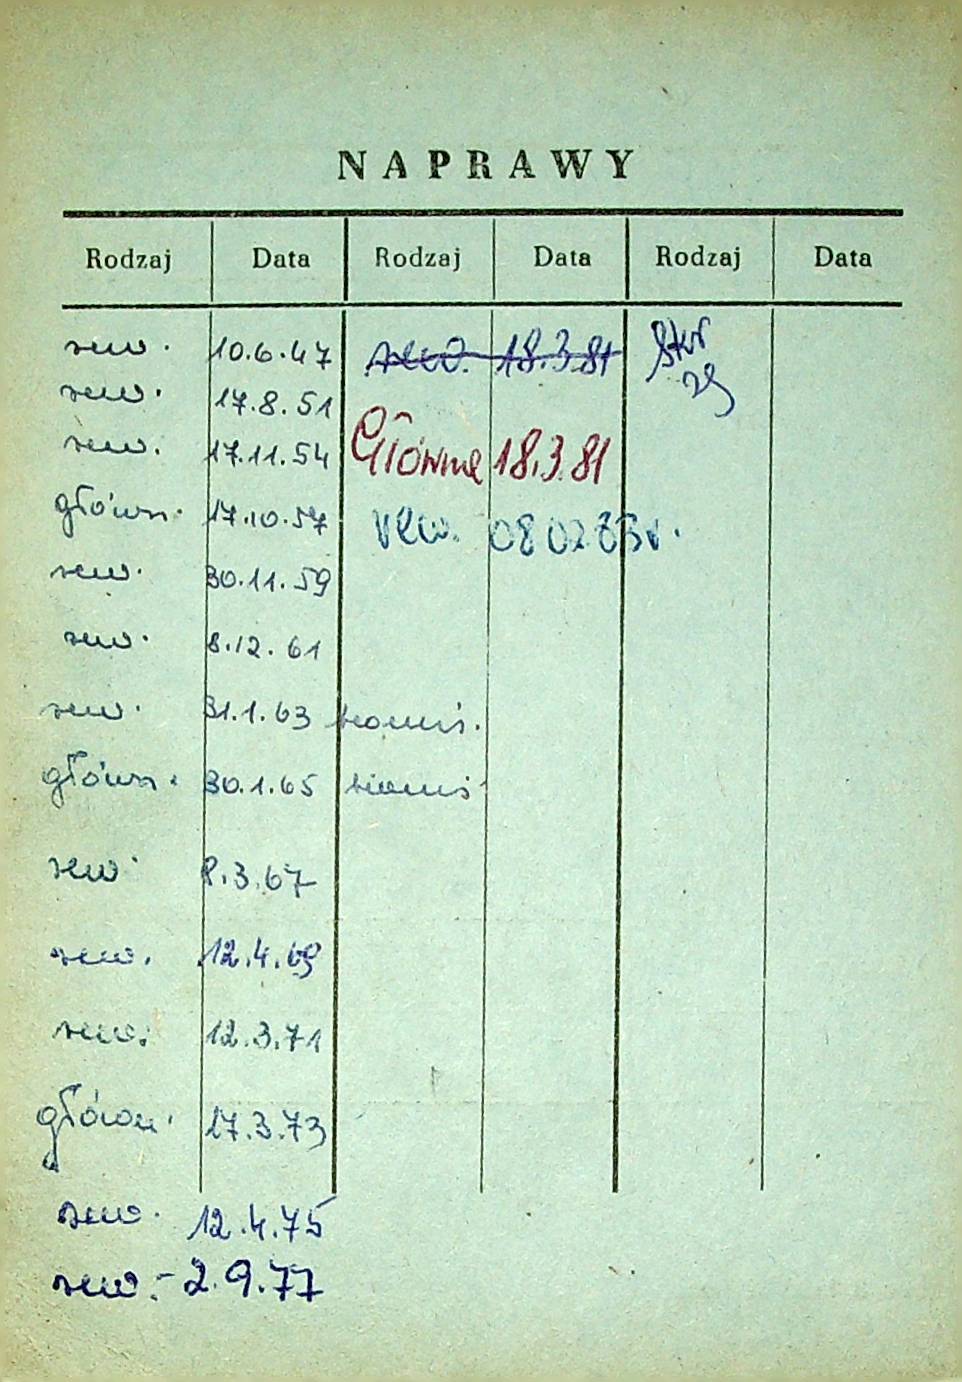 NAPRAWY
Rodzaj Data Rodzaj Data Rodzaj Data
rew. 10.6.47 rew. 18.3.81
rew. 17.8.51
rew. 17.11.54 Główne 18.3.81
główn. 17.10.57 rew. 08 02 83 r.
rew. 30.11.59
rew. 8.12.61
rew. 31.1.63
główn. 30.1.65
rew. 8.3.67
rew. 12.4.69
rew. 12.3.71
główn. 17.3.73
rew. 12.4.75
rew. - 2.9.77